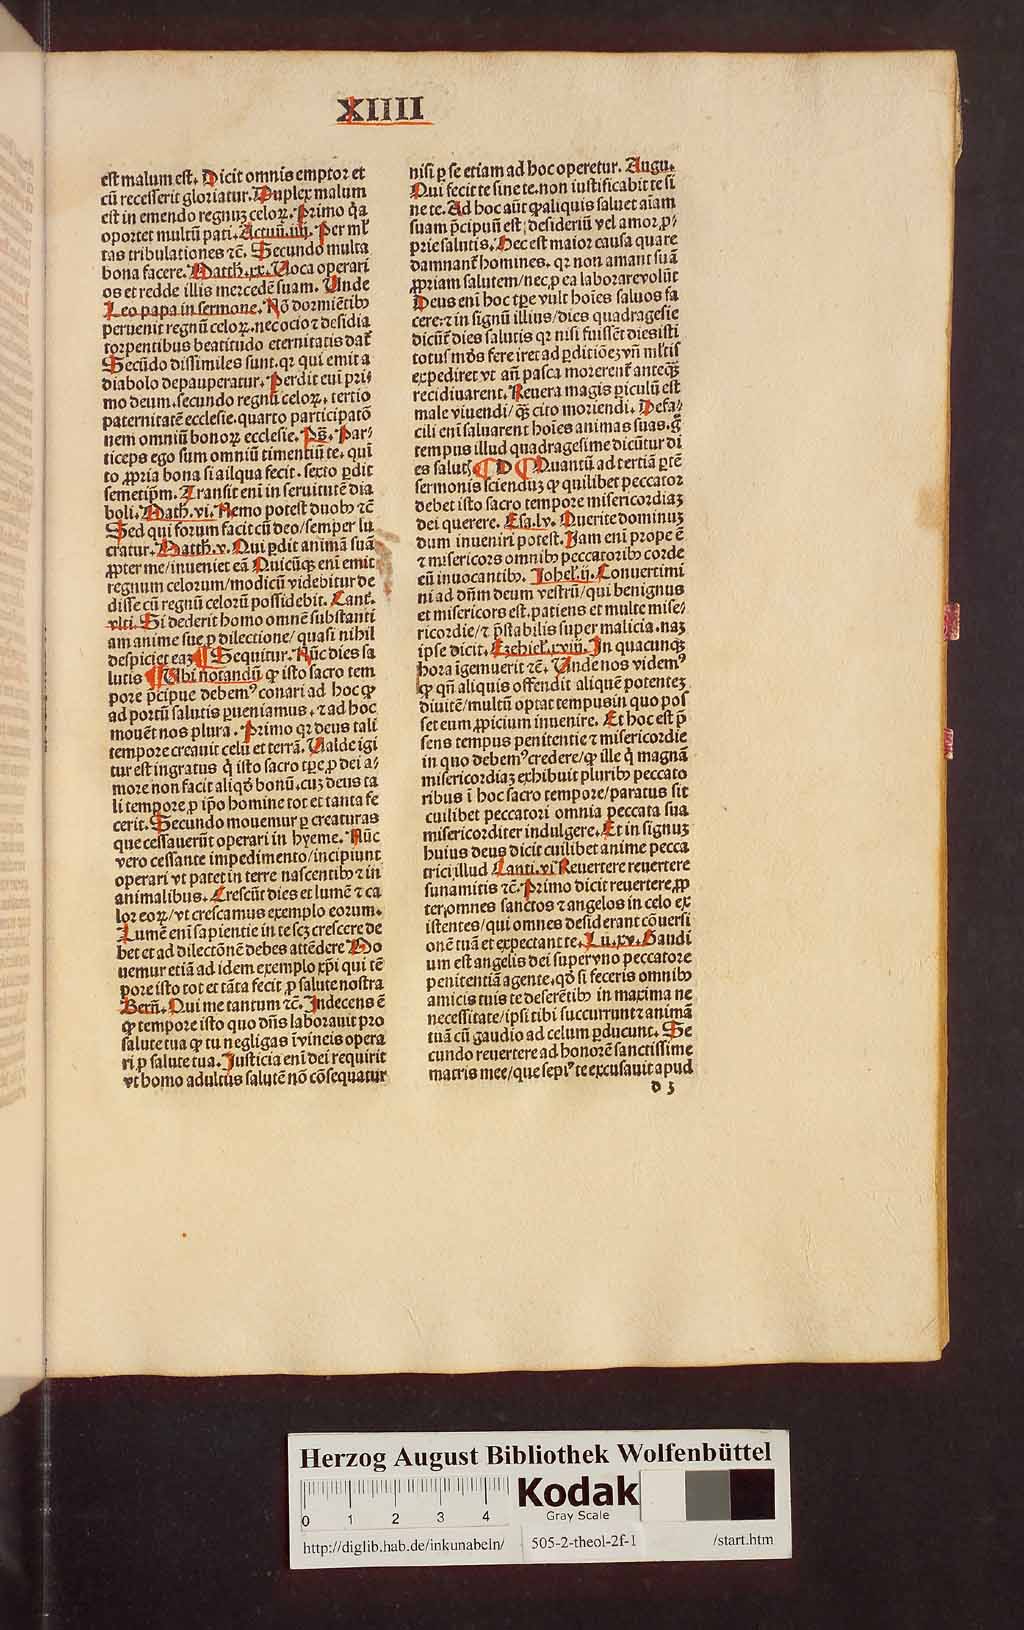 XIIII
est malum est. Dicit omnis emptor et
cū recesserit gloriatur. Duplex malum
est in emendo regnuꝫ celoꝝ. Primo qꝛ
oportet multū pati. Actuū .iiij. Per ml̄
tas tribulationes ⁊c̄. Secundo multa
bona facere. Matth̄. xx. Uoca operari
os et redde illis mercedē suam. Unde
Leo papa in sermone. Nō dormiētibꝰ
peruenit regnū celoꝝ. necocio ⁊ desidia
torpentibus beatitudo eternitatis daṫ
Secūdo dissimiles sunt. qꝛ qui emit a
diabolo depauperatur. Perdit eni pri⸗
mo deum. secundo regnū celoꝝ. tertio
paternitatē ecclesie. quarto participatō
nem omniū bonoꝝ ecclesie. Ps̄. Par⸗
ticeps ego sum omniū timentiū te. qui
to ꝓpria bona si ailqua fecit. sexto ꝑdit
semetip̄m. Transit eni in seruitutē dia
boli. Math̄. vi. Nemo potest duobꝰ ⁊c̄
Sed qui forum facit cū deo/semper lu
cratur. Matth̄. v. Qui ꝑdit animā suā
ꝓpter me/inueniet eā Quicūqꝫ eni emit
regnum celorum/modicū videbitur de
disse cū regnū celorū possidebit. Cant̄.
vlti. Si dederit homo omnē substanti
am anime sue ꝓ dilectione/quasi nihil
despiciet eaꝫ ¶ Sequitur. Nūc dies sa
lutis ¶ Ubi notandū ꝙ isto sacro tem
pore p̄cipue debemꝰ conari ad hoc ꝙ
ad portū salutis ꝑueniamus. ⁊ ad hoc
mouēt nos plura. Primo qꝛ deus tali
tempore creauit celū et terrā. Ualde igi
tur est ingratus q̇ isto sacro tp̄e ꝓ dei a⸗
more non facit aliqd̄ bonū. cuꝫ deus ta
li tempore ꝓ ip̄o homine tot et tanta fe
cerit. Secundo mouemur ꝑ creaturas
que cessauerūt operari in hyeme. Nūc
vero cessante impedimento/incipiunt
operari vt patet in terre nascentibꝰ ⁊ in
animalibus. Crescūt dies et lumē ⁊ ca
lor eoꝝ/vt crescamus exemplo eorum.
Lumē eni sapientie in te scꝫ crescere de
bet et ad dilectōnē debes attēdere Mo
uemur etiā ad idem exemplo xp̄i qui tē
pore isto tot et tāta fecit ꝓ salute nostra
Berñ. Qui me tantum ⁊c̄. Indecens ē
ꝙ tempore isto quo dn̄s laborauit pro
salute tua ꝙ tu negligas ī vineis opera
ri ꝓ salute tua. Justicia eni dei requirit
vt homo adultus salutē nō cōsequatur
nisi ꝑ se etiam ad hoc operetur. Augu.
Qui fecit te sine te. non iustificabit te si
ne te. Ad hoc aūt ꝙ aliquis saluet aīam
suam p̄cipuū est desideriū vel amor ꝓ⸗
prie salutis. Hec est maior causa quare
damnant̄ homines. qꝛ non amant suā
ꝓpriam salutem/nec ꝓ ea laborare volūt
Deus eni hoc tp̄e vult hoīes saluos fa
cere: ⁊ in signū illius/dies quadragesie
dicūt̄ dies salutis qꝛ nisi fuissēt dies isti
totus mūs fere iret ad ꝑditiōeꝫ vn̄ ml̄tis
expediret vt añ pasca morerent̄ anteqꝫ
recidiuarent. Reuera magis ꝑiculū est
male viuendi/qꝫ cito moriendi. De fa⸗
cili eni saluarent hoīes animas suas. g̊
tempus illud quadragesime dicūtur di
es salutꝭ ¶ D ¶ Quantū ad tertiā ꝑtē
sermonis sciendum ꝙ quilibet peccator
debet isto sacro tempore misericordiaꝫ
dei querere. Esa. lv. Querite dominuꝫ
dum inueniri potest. Nam eni prope ē
⁊ misericors omnibꝰ peccatoribꝰ corde
eū inuocantibꝰ. Johel̄. ij. Conuertimi
ni ad dn̄m deum vestrū/qui benignus
et misericors est. patiens et multe mise⸗
ricordie/⁊ p̄stabilis super malicia. naꝫ
ipse dicit. Ezehiel̄. xviij. In quacunqꝫ
hora īgemuerit ⁊c̄. Unde nos videmꝰ
ꝙ qn̄ aliquis offendit aliquē potenteꝫ
diuitē/multū optat tempus in quo pos
set eum ꝓpicium inuenire. Et hoc est p̄
sens tempus penitentie ⁊ misericordie
in quo debemꝰ credere/ꝙ ille q̇ magnā
misericordiaꝫ exhibuit pluribꝰ peccato
ribus ī hoc sacro tempore/paratus sit
cuilibet peccatori omnia peccata sua
misericorditer indulgere. Et in signuꝫ
huius deus dicit cuilibet anime pecca
trici illud Canti. vi Reuertere reuertere
sunamitis ⁊c̄. Primo dicit reuertere ꝓp
ter omnes sanctos ⁊ angelos in celo ex
istentes/qui omnes desiderant cōuersi
onē tuā et expectant te. Lu. xv. Gaudi
um est angelis dei super vno peccatore
penitentiā agente. qd̄ si feceris omnibꝰ
amicis tuis te deserētibꝰ in maxima ne
necessitate/ipsi tibi succurrunt ⁊ animā
tuā cū gaudio ad celum ꝑducunt. Se
cundo reuertere ad honorē sanctissime
matris mee/que sepiꝰ te excusauit apud
d 3
Herzog August Bibliothek Wolfenbüttel
0 1 2 3 4
Kodak
Gray Scale
http://diglib.hab.de/inkunabeln/ 505-2-theol-2f-1 /start.htm